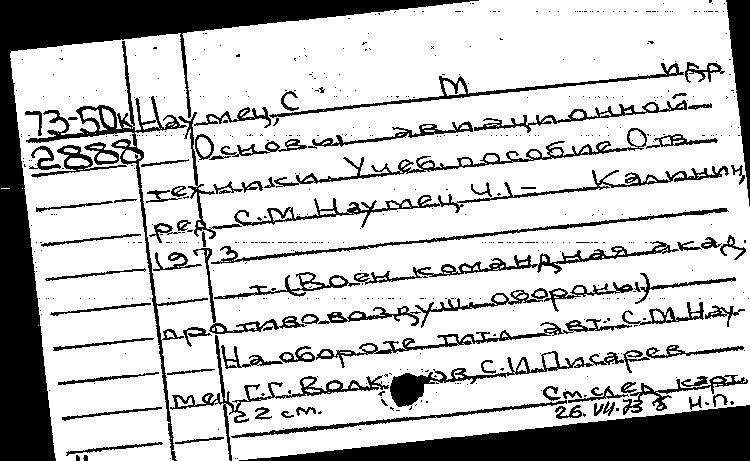 73-50к Наумец, С М и др
2888 Основы авиационной
техники. Учеб. пособие Отв.
ред. С.М. Наумец, Ч.1– Калинин,
1973
т. (Воен командная акад.
противовоздуш. обороны)
На обороте тит.л авт.: С.М.Нау-
мец, Г.Г.Волков, С.И.Писарев
22 см. См.след карт.
26.VII.73 Н.П.